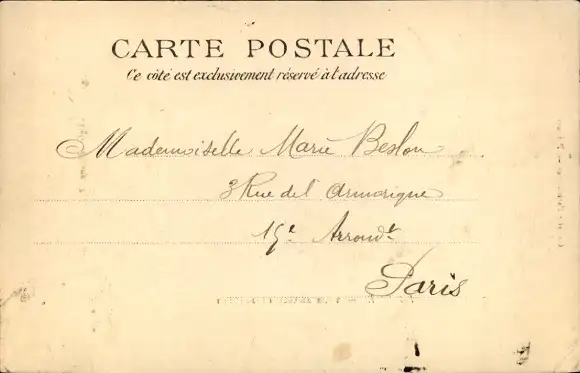 CARTE POSTALE
Ce côté est exclusivement réservé à l'adresse
Mademoiselle Marie Beslou
3 Rue del' Armorique
15e Arrondt
Paris